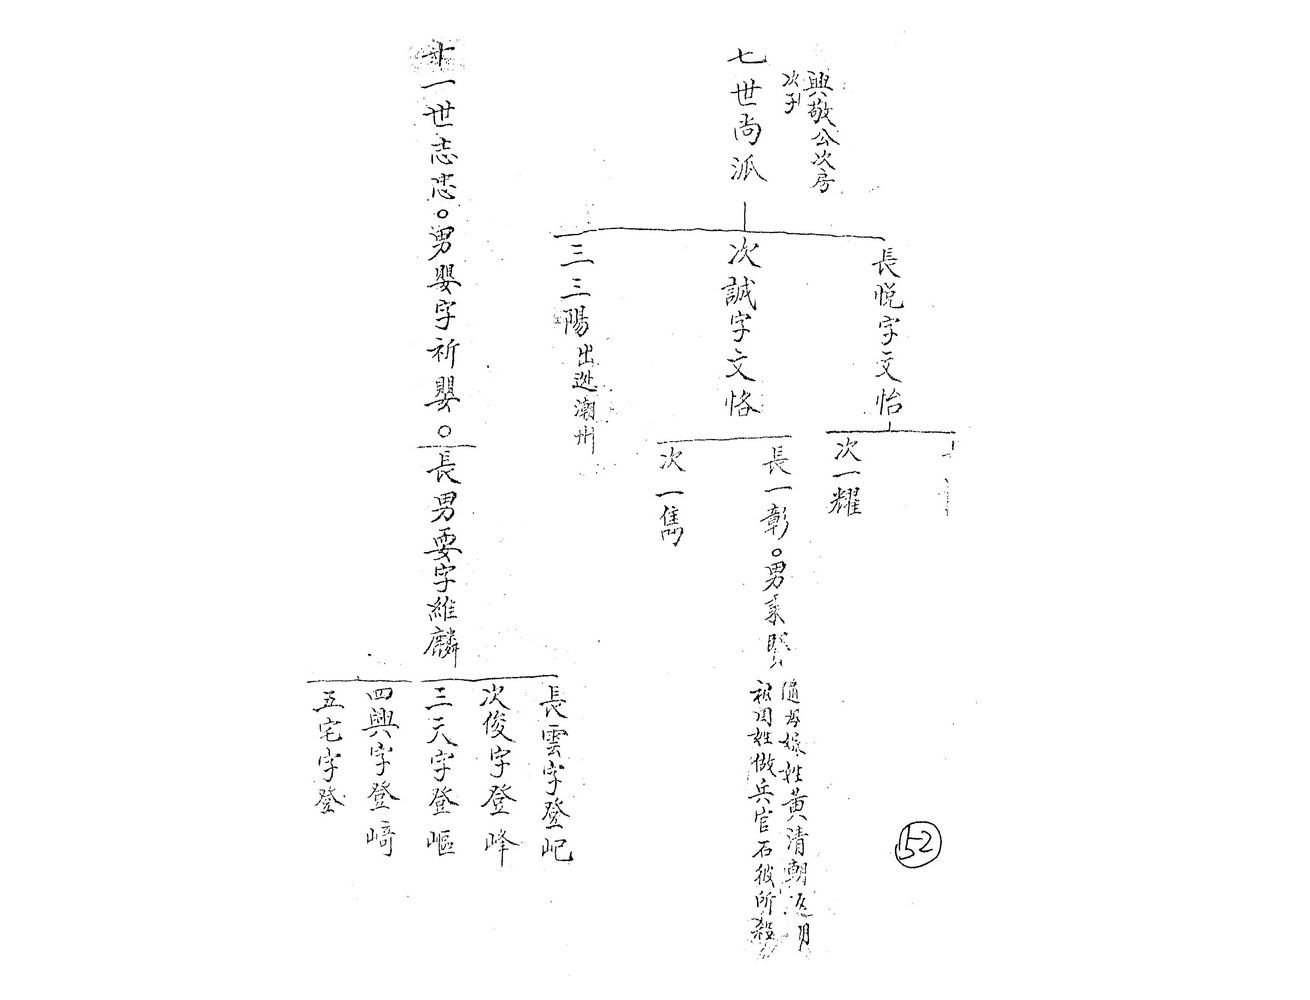 興敬公次房
次子
七世尚派
長悦字文怡
次誠字文恪
三三陽出逃潮州
次一耀
長一彰。男
次一雋
隨母嫁姓黃清朝返月
被周姓做兵官石彼所殺
十一世志。男嬰字祈嬰。
長男要字維麟
長雲字登屺
次俊字登峰
三天字登嶇
四興字登﨑
五宅字登
52